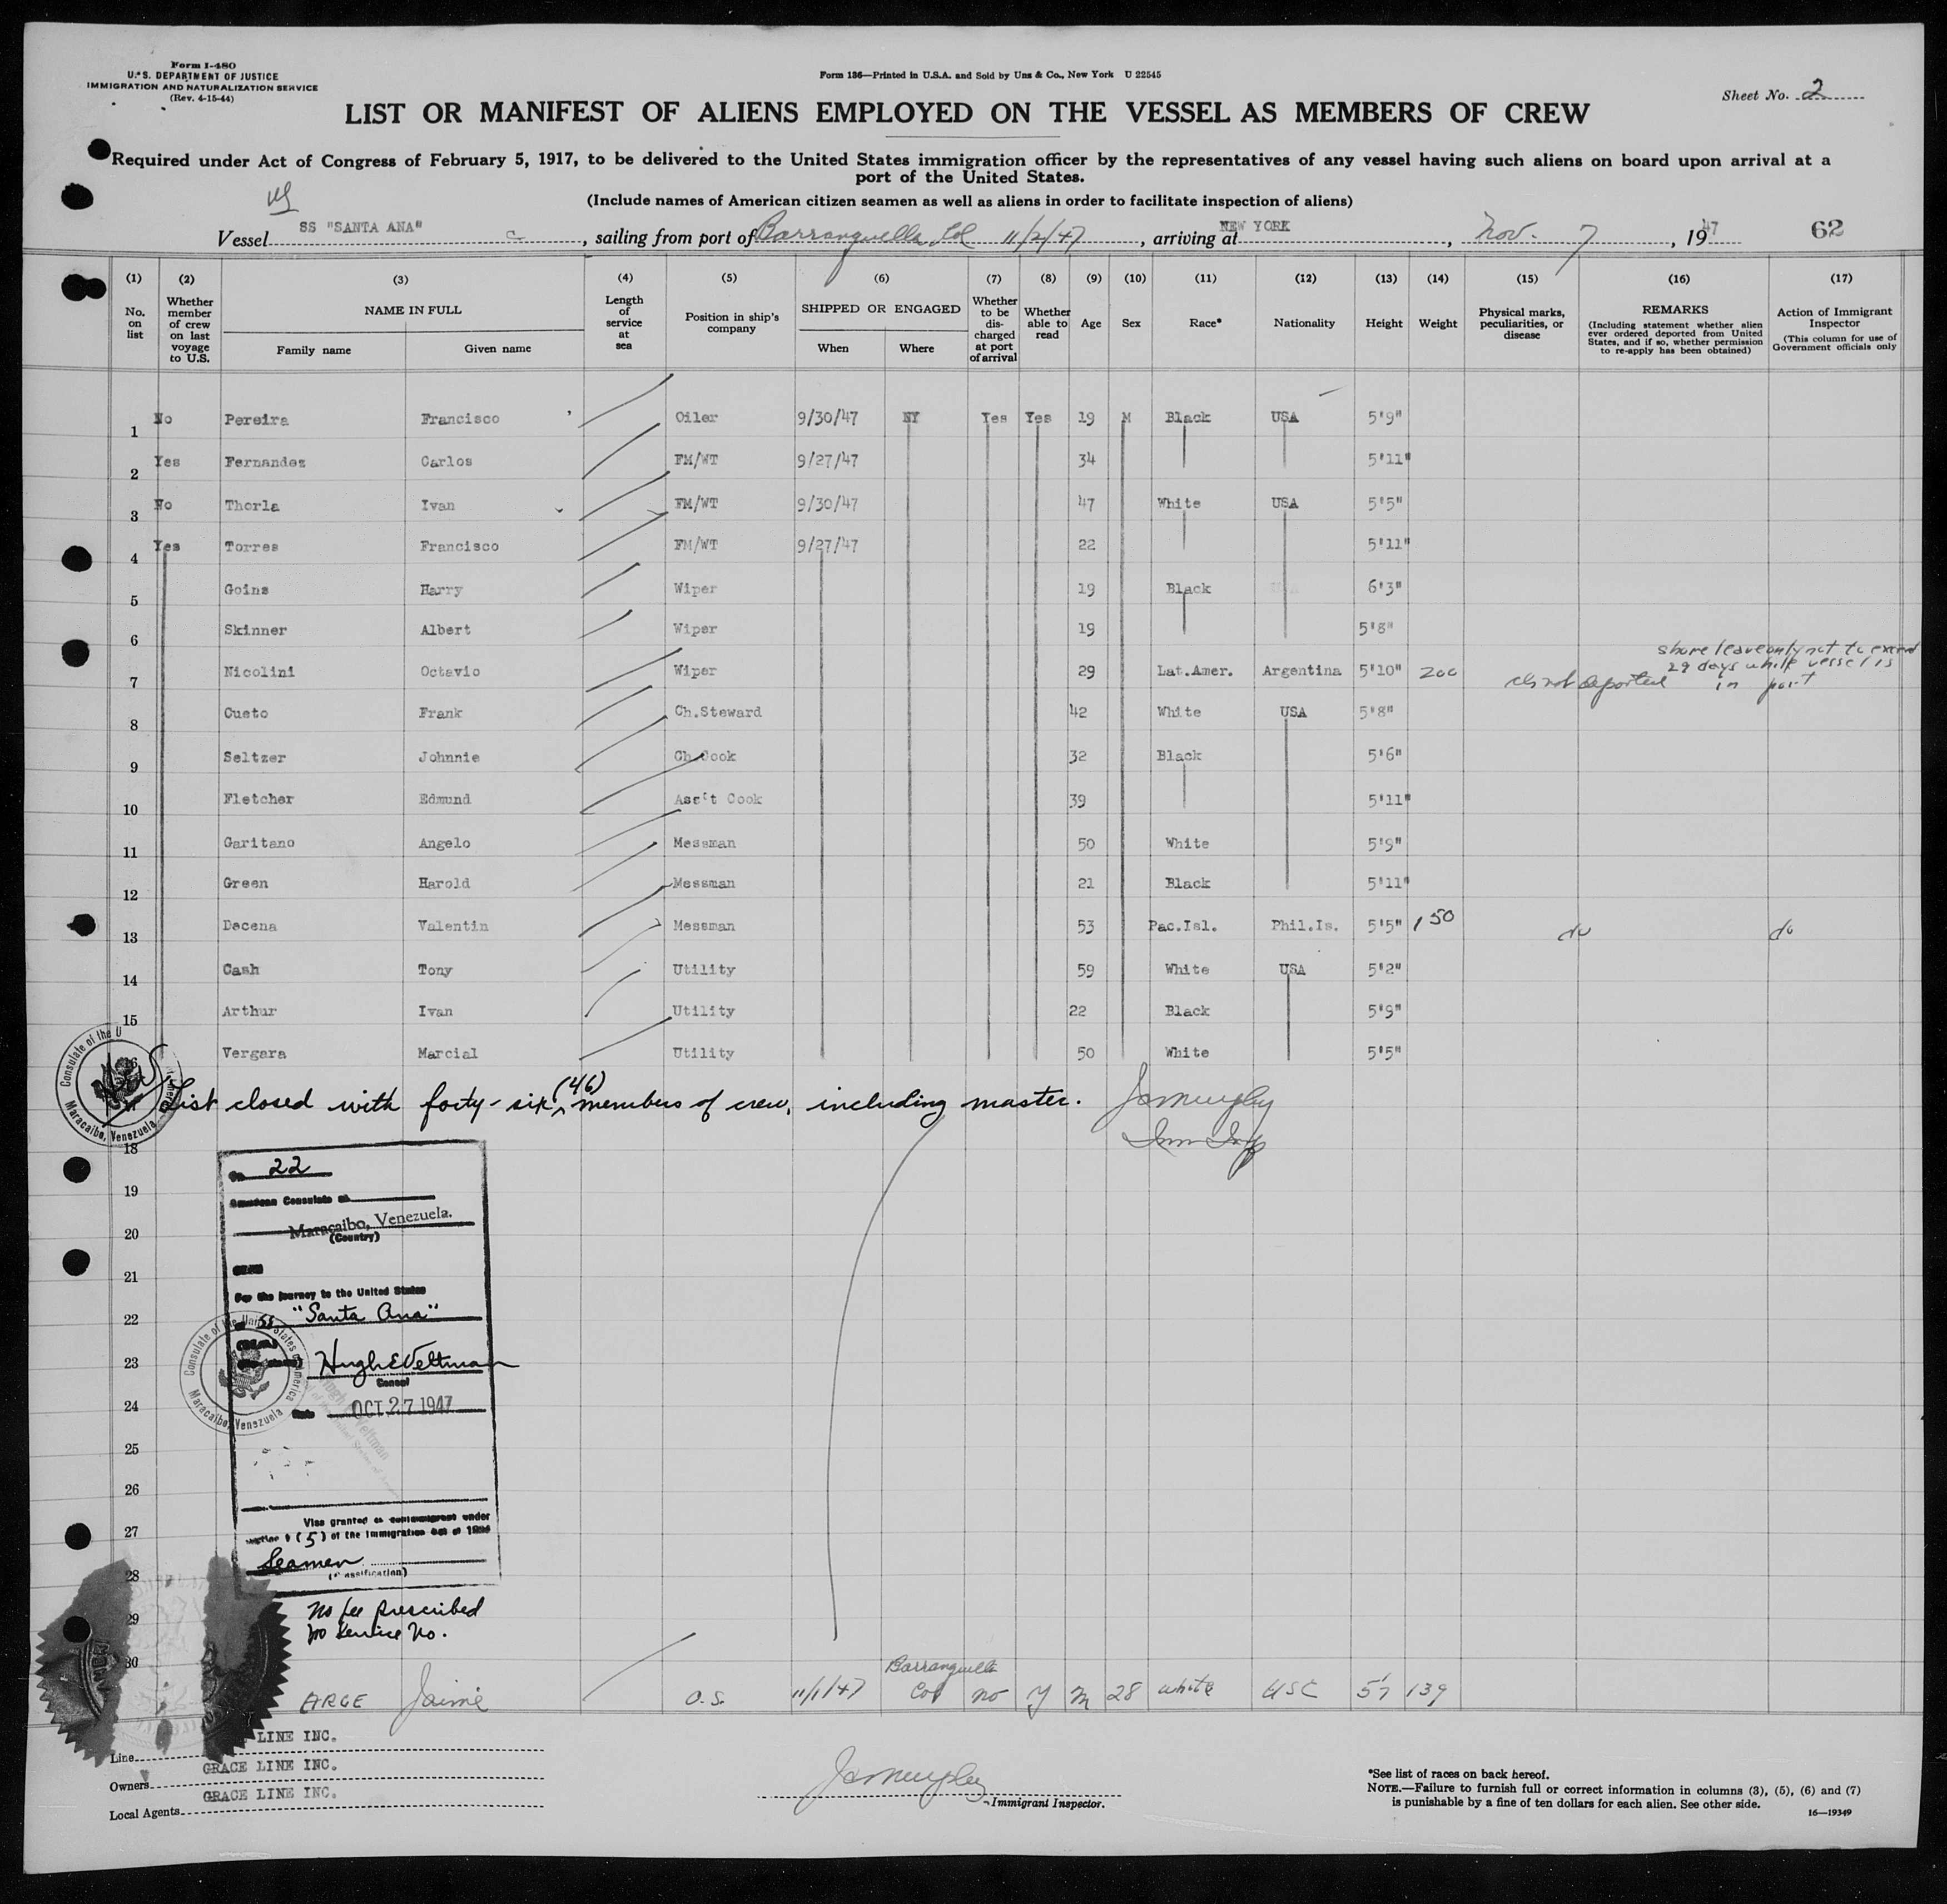 Form I-480
U. S. DEPARTMENT OF JUSTICE
IMMIGRATION AND NATURALIZATION SERVICE
(Rev. 4-15-44)
Form 136—Printed in U.S.A. and Sold by Unz & Co., New York U 22545
Sheet No. 2
LIST OR MANIFEST OF ALIENS EMPLOYED ON THE VESSEL AS MEMBERS OF CREW
Required under Act of Congress of February 5, 1917, to be delivered to the United States immigration officer by the representatives of any vessel having such aliens on board upon arrival at a
port of the United States.
(Include names of American citizen seamen as well as aliens in order to facilitate inspection of aliens)
Vessel SS "SANTA ANA", sailing from port of Barranquilla Col 11/2/47, arriving at NEW YORK, Nov. 7, 1947 62
(1) (2) (3) (4) (5) (6) (7) (8) (9) (10) (11) (12) (13) (14) (15) (16) (17)
No. on list
Whether member of crew on last voyage to U.S.
NAME IN FULL
Family name Given name
Length of service at sea
Position in ship's company
SHIPPED OR ENGAGED
When Where
Whether to be discharged at port of arrival
Whether able to read
Age
Sex
Race*
Nationality
Height
Weight
Physical marks, peculiarities, or disease
REMARKS
(Including statement whether alien ever ordered deported from United States, and if so, whether permission to re-apply has been obtained)
Action of Immigrant Inspector
(This column for use of Government officials only
1 No Pereira Francisco Oiler 9/30/47 NY Yes Yes 19 M Black USA 5'9"
2 Yes Fernandez Carlos FM/WT 9/27/47 34 5'11"
3 No Thorla Ivan FM/WT 9/30/47 47 White USA 5'5"
4 Yes Torres Francisco FM/WT 9/27/47 22 5'11"
5 Goins Harry Wiper 19 Black 6'3"
6 Skinner Albert Wiper 19 5'8"
shore leave only not to exceed
29 days while vessel is
in port
7 Nicolini Octavio Wiper 29 Lat.Amer. Argentina 5'10" 200 not deported
8 Cueto Frank Ch.Steward 42 White USA 5'8"
9 Seltzer Johnnie Ch.Cook 32 Black 5'6"
10 Fletcher Edmund Ass't Cook 39 5'11"
11 Garitano Angelo Messman 50 White 5'9"
12 Green Harold Messman 21 Black 5'11"
13 Decena Valentin Messman 53 Pac.Isl. Phil.Is. 5'5" 150 do do
14 Cash Tony Utility 59 White USA 5'2"
15 Arthur Ivan Utility 22 Black 5'9"
Vergara Marcial Utility 50 White 5'5"
List closed with forty-six (46) members of crew, including master.
Consulate of the U
Maracaibo, Venezuela
18
19
20
21
22
23
24
25
26
27
28
29
30
22
American Consulate at
Maracaibo, Venezuela.
(Country)
For the journey to the United States
SS "Santa Ana"
Hugh E Veltman
Consul
OCT 27 1947
Consulate of the United States of America
Maracaibo, Venezuela
Visa granted as nonimmigrant under
section 3 (5) of the Immigration Act of 1924
Seamen
(Classification)
No fee prescribed
No Service No.
ARGE Jaime O.S. 11/1/47 Barranquilla Col no y M 28 white USC 5'7 139
Line LINE INC.
Owners GRACE LINE INC.
Local Agents GRACE LINE INC.
Immigrant Inspector.
*See list of races on back hereof.
NOTE.—Failure to furnish full or correct information in columns (3), (5), (6) and (7)
is punishable by a fine of ten dollars for each alien. See other side.
16—19349